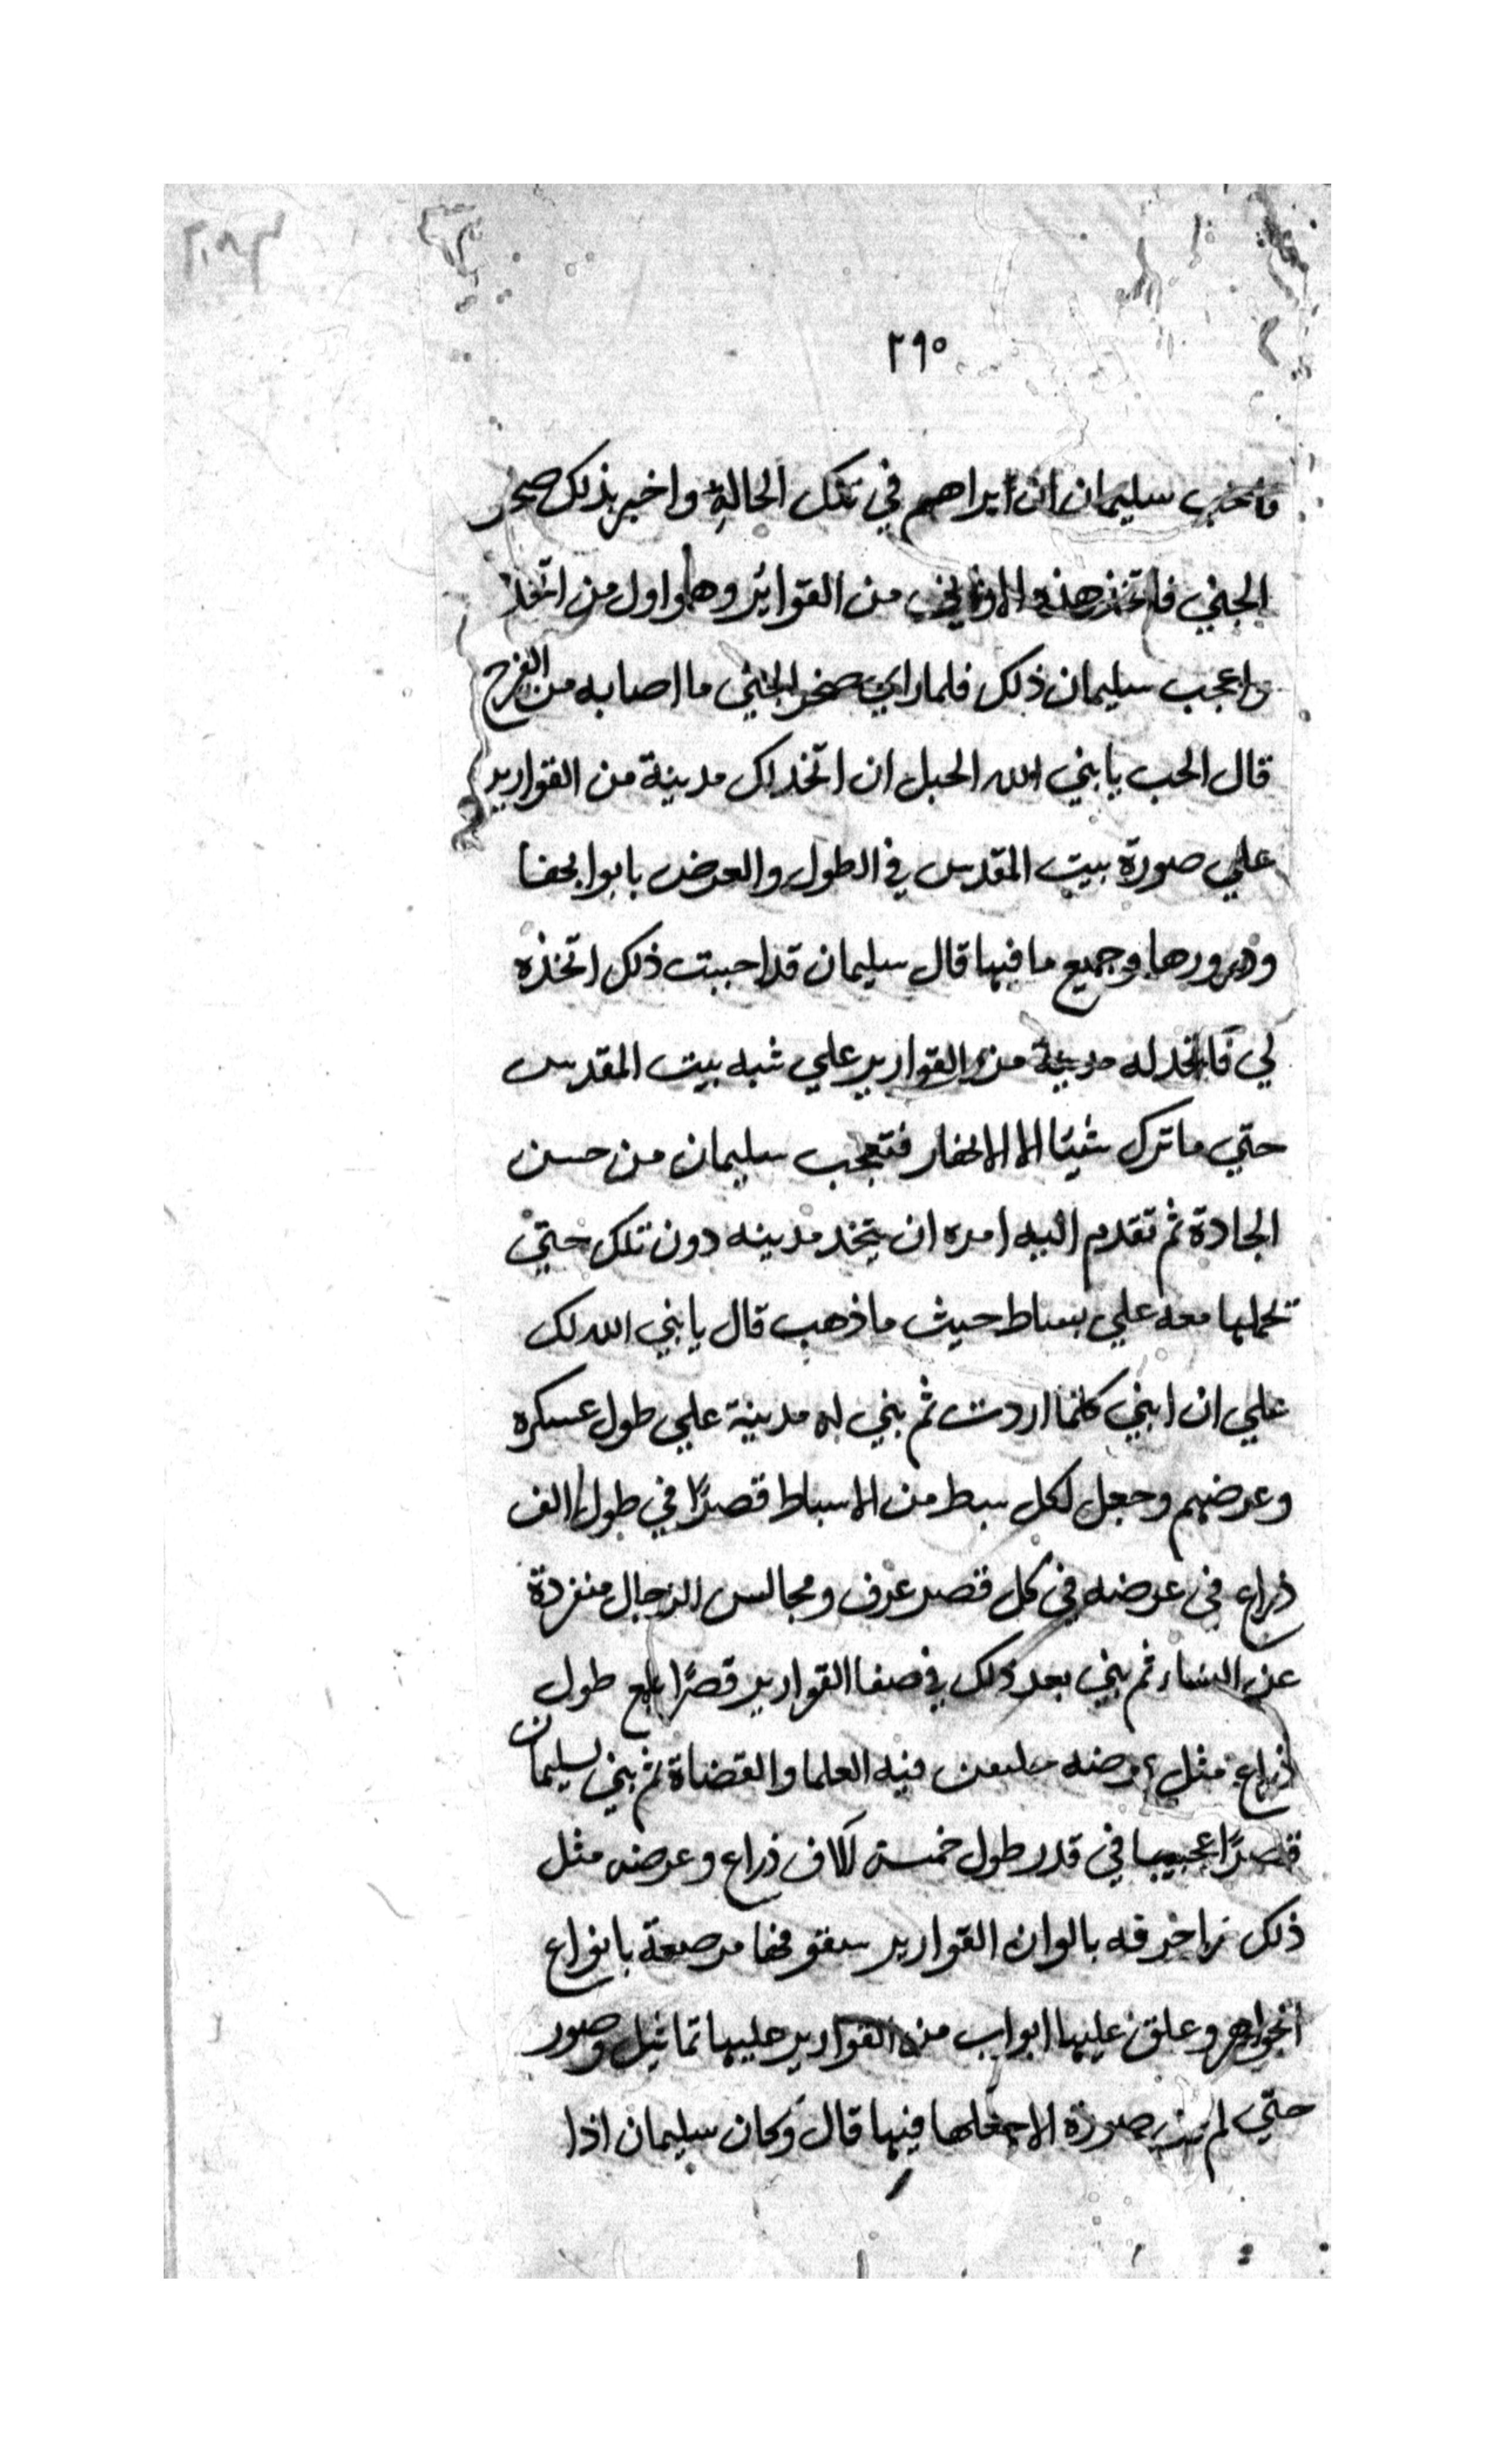 ٢٩٠
فاحب سليمان ان ايراهم في تلك الحالة واخبر بذلك صخر
الجني فاتخذ هذه الاواني من القوارير وهو اول من اتخذ
واعجب سليمان ذلك فلما راي صخر الجني ما اصابه من الفرح
قال اتحب يا نبي الله الحبل ان اتخذ لك مدينة من القوارير
علي صورة بيت المقدس في الطول والعرض بابوابها
ودورها وجميع ما فيها قال سليمان قد احببت ذلك اتخذه
لي فاتخد له مدينة من القوارير علي شبه بيت المقدس
حتي ما ترك شيئا الا الانهار فتعجب سليمان من حسن
الجادة ثم تقدم اليه امره ان يتخد مدينه دون تلك حتي
تحملها معه علي بساط حيث ما ذهب قال يا نبي الله لك
علي ان ابني كلما اردت ثم بني له مدينة علي طول عسكره
وعرضهم وجعل لكل سبط من الاسباط قصرًا في طول الف
ذراع في عرضه في كل قصر غرف ومجالس الرجال منفردة
عن النساء ثم بني بعد ذلك في القوارير قصرًا طول
ذراع مثل عرضه فيه العلما والقضاة ثم بني لسليمان
قصرًا عجيبا في قدر طول خمسة آلاف ذراع وعرضه مثل
ذلك زاخرفه بالوان القوارير سقوفها مرصعة بانواع
الجواهر وعلق عليها ابواب من القوارير عليها تماثيل وصور
حتي لم صورة الا جعلها فيها قال وكان سليمان اذا